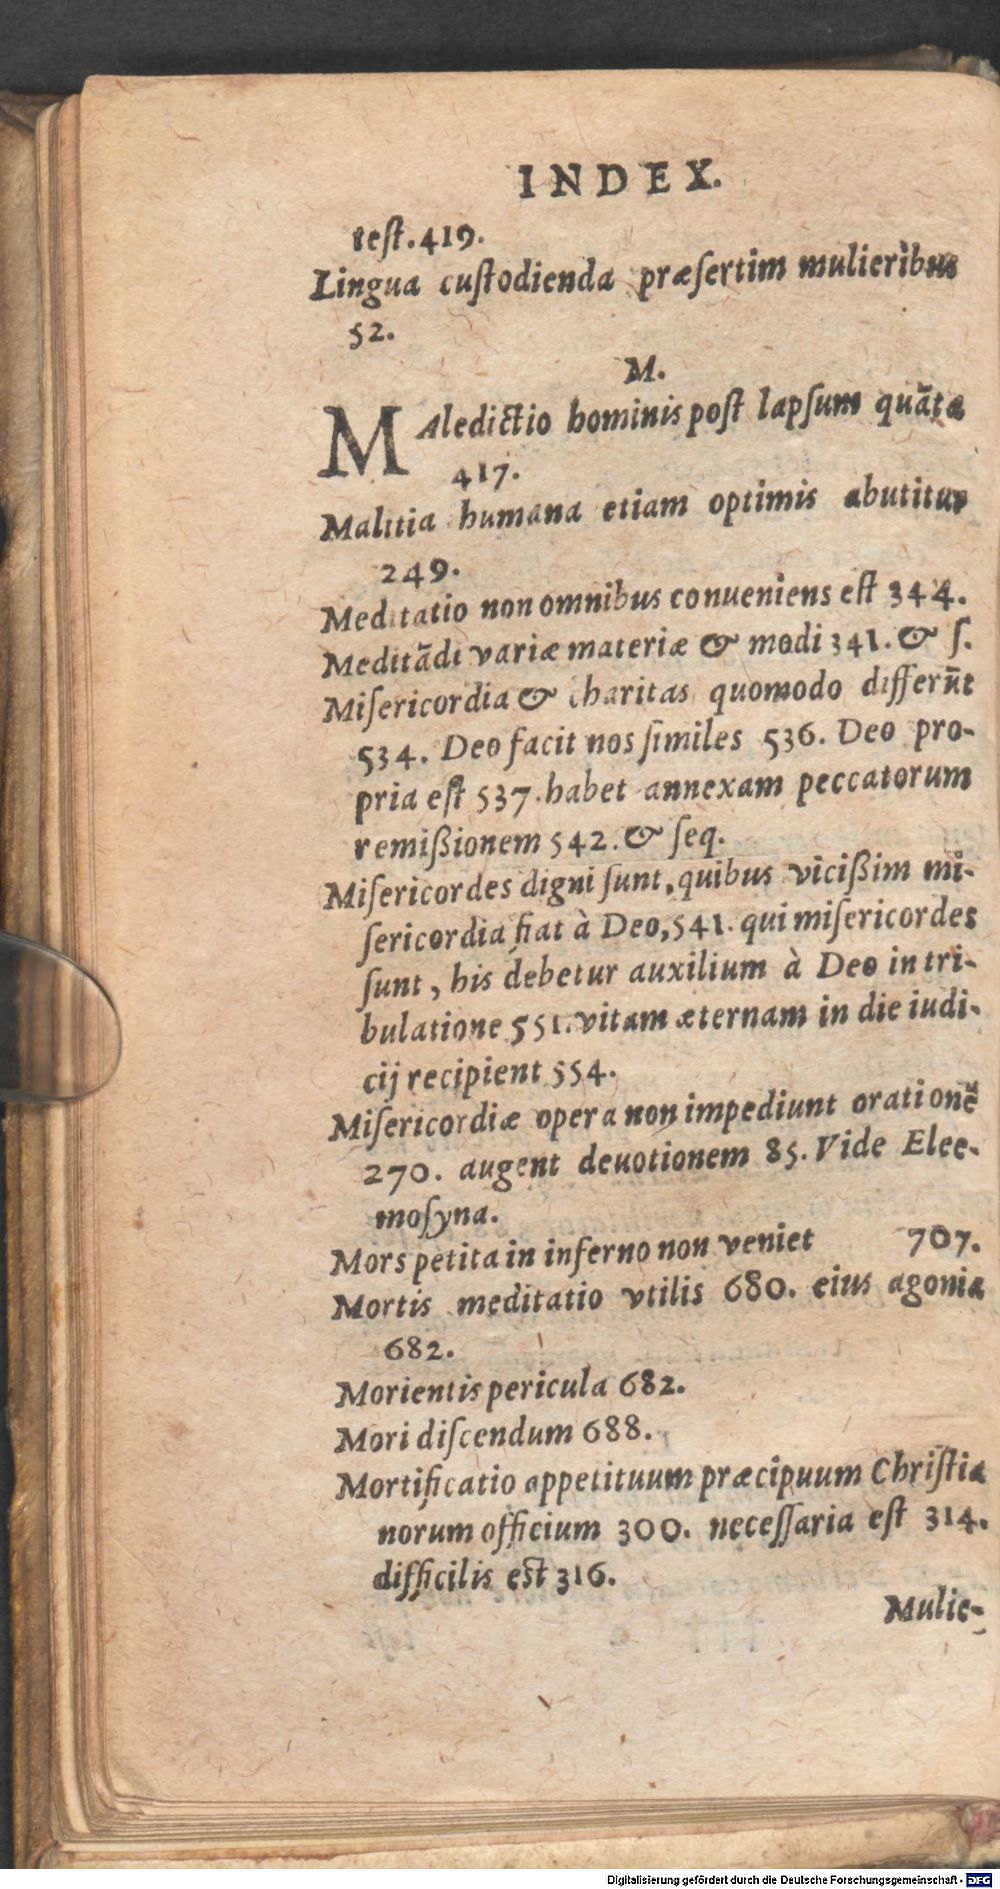 INDEX.
test. 419.
Lingua custodienda præsertim mulieribus
52.
M.
MAledictio hominis post lapsum quãtæ
417.
Malitia humana etiam optimis abutitur
249.
Meditatio non omnibus conueniens est 344.
Meditãdi variæ materiæ & modi 341. & ſ.
Miſericordia & charitas quomodo differūt
534. Deo facit nos ſimiles 536. Deo pro-
pria eſt 537. habet annexam peccatorum
remißionem 542. & ſeq.
Miſericordes digni ſunt, quibus vicißim mi-
ſericordia fiat à Deo, 541. qui miſericordes
ſunt, his debetur auxilium à Deo in tri-
bulatione 551. vitam æternam in die iudi-
cij recipient 554.
Miſericordiæ opera non impediunt orationē
270. augent deuotionem 85. Vide Elee-
moſyna.
Mors petita in inferno non veniet 707.
Mortis meditatio vtilis 680. eius agonia
682.
Morientis pericula 682.
Mori diſcendum 688.
Mortificatio appetituum præcipuum Chriſtia
norum officium 300. neceſſaria eſt 314.
difficilis eſt 316.
Mulie-
Digitalisierung gefördert durch die Deutsche Forschungsgemeinschaft - DFG